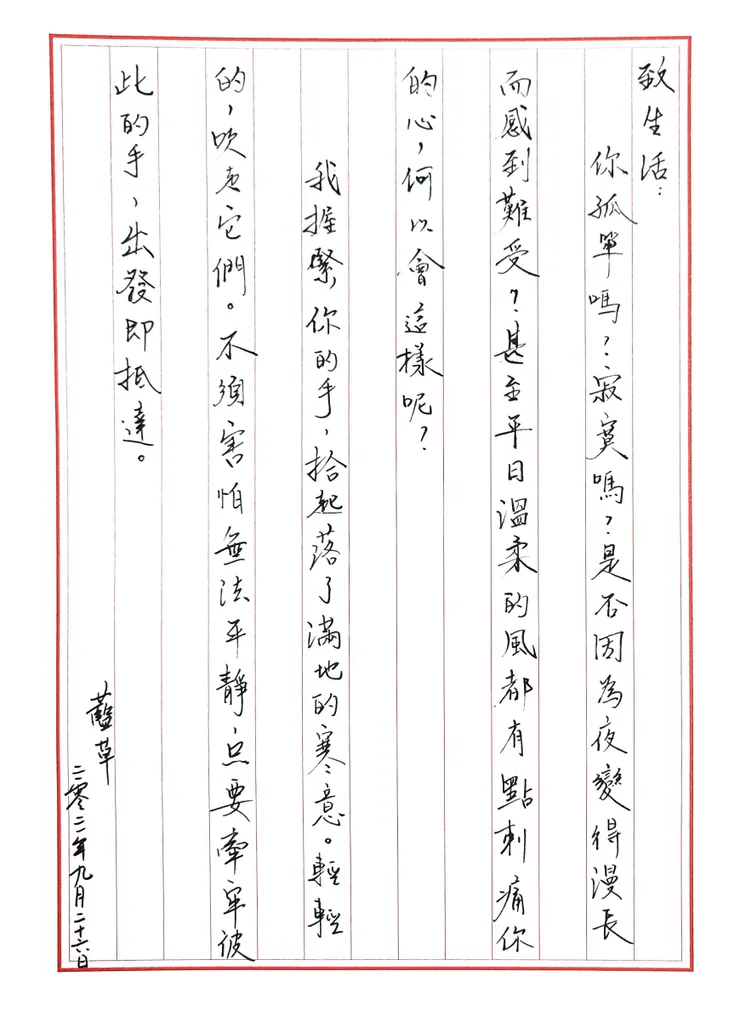 致生活：
你孤單嗎？寂寞嗎？是否因為夜變得漫長
而感到難受？甚至平日溫柔的風都有點刺痛你
的心，何以會這樣呢？
我握緊你的手，拾起落了滿地的寒意。輕輕
的，吹走它們。不須害怕無法平靜，只要牽牢彼
此的手，出發即抵達。
藍草
二零二二年九月二十六日